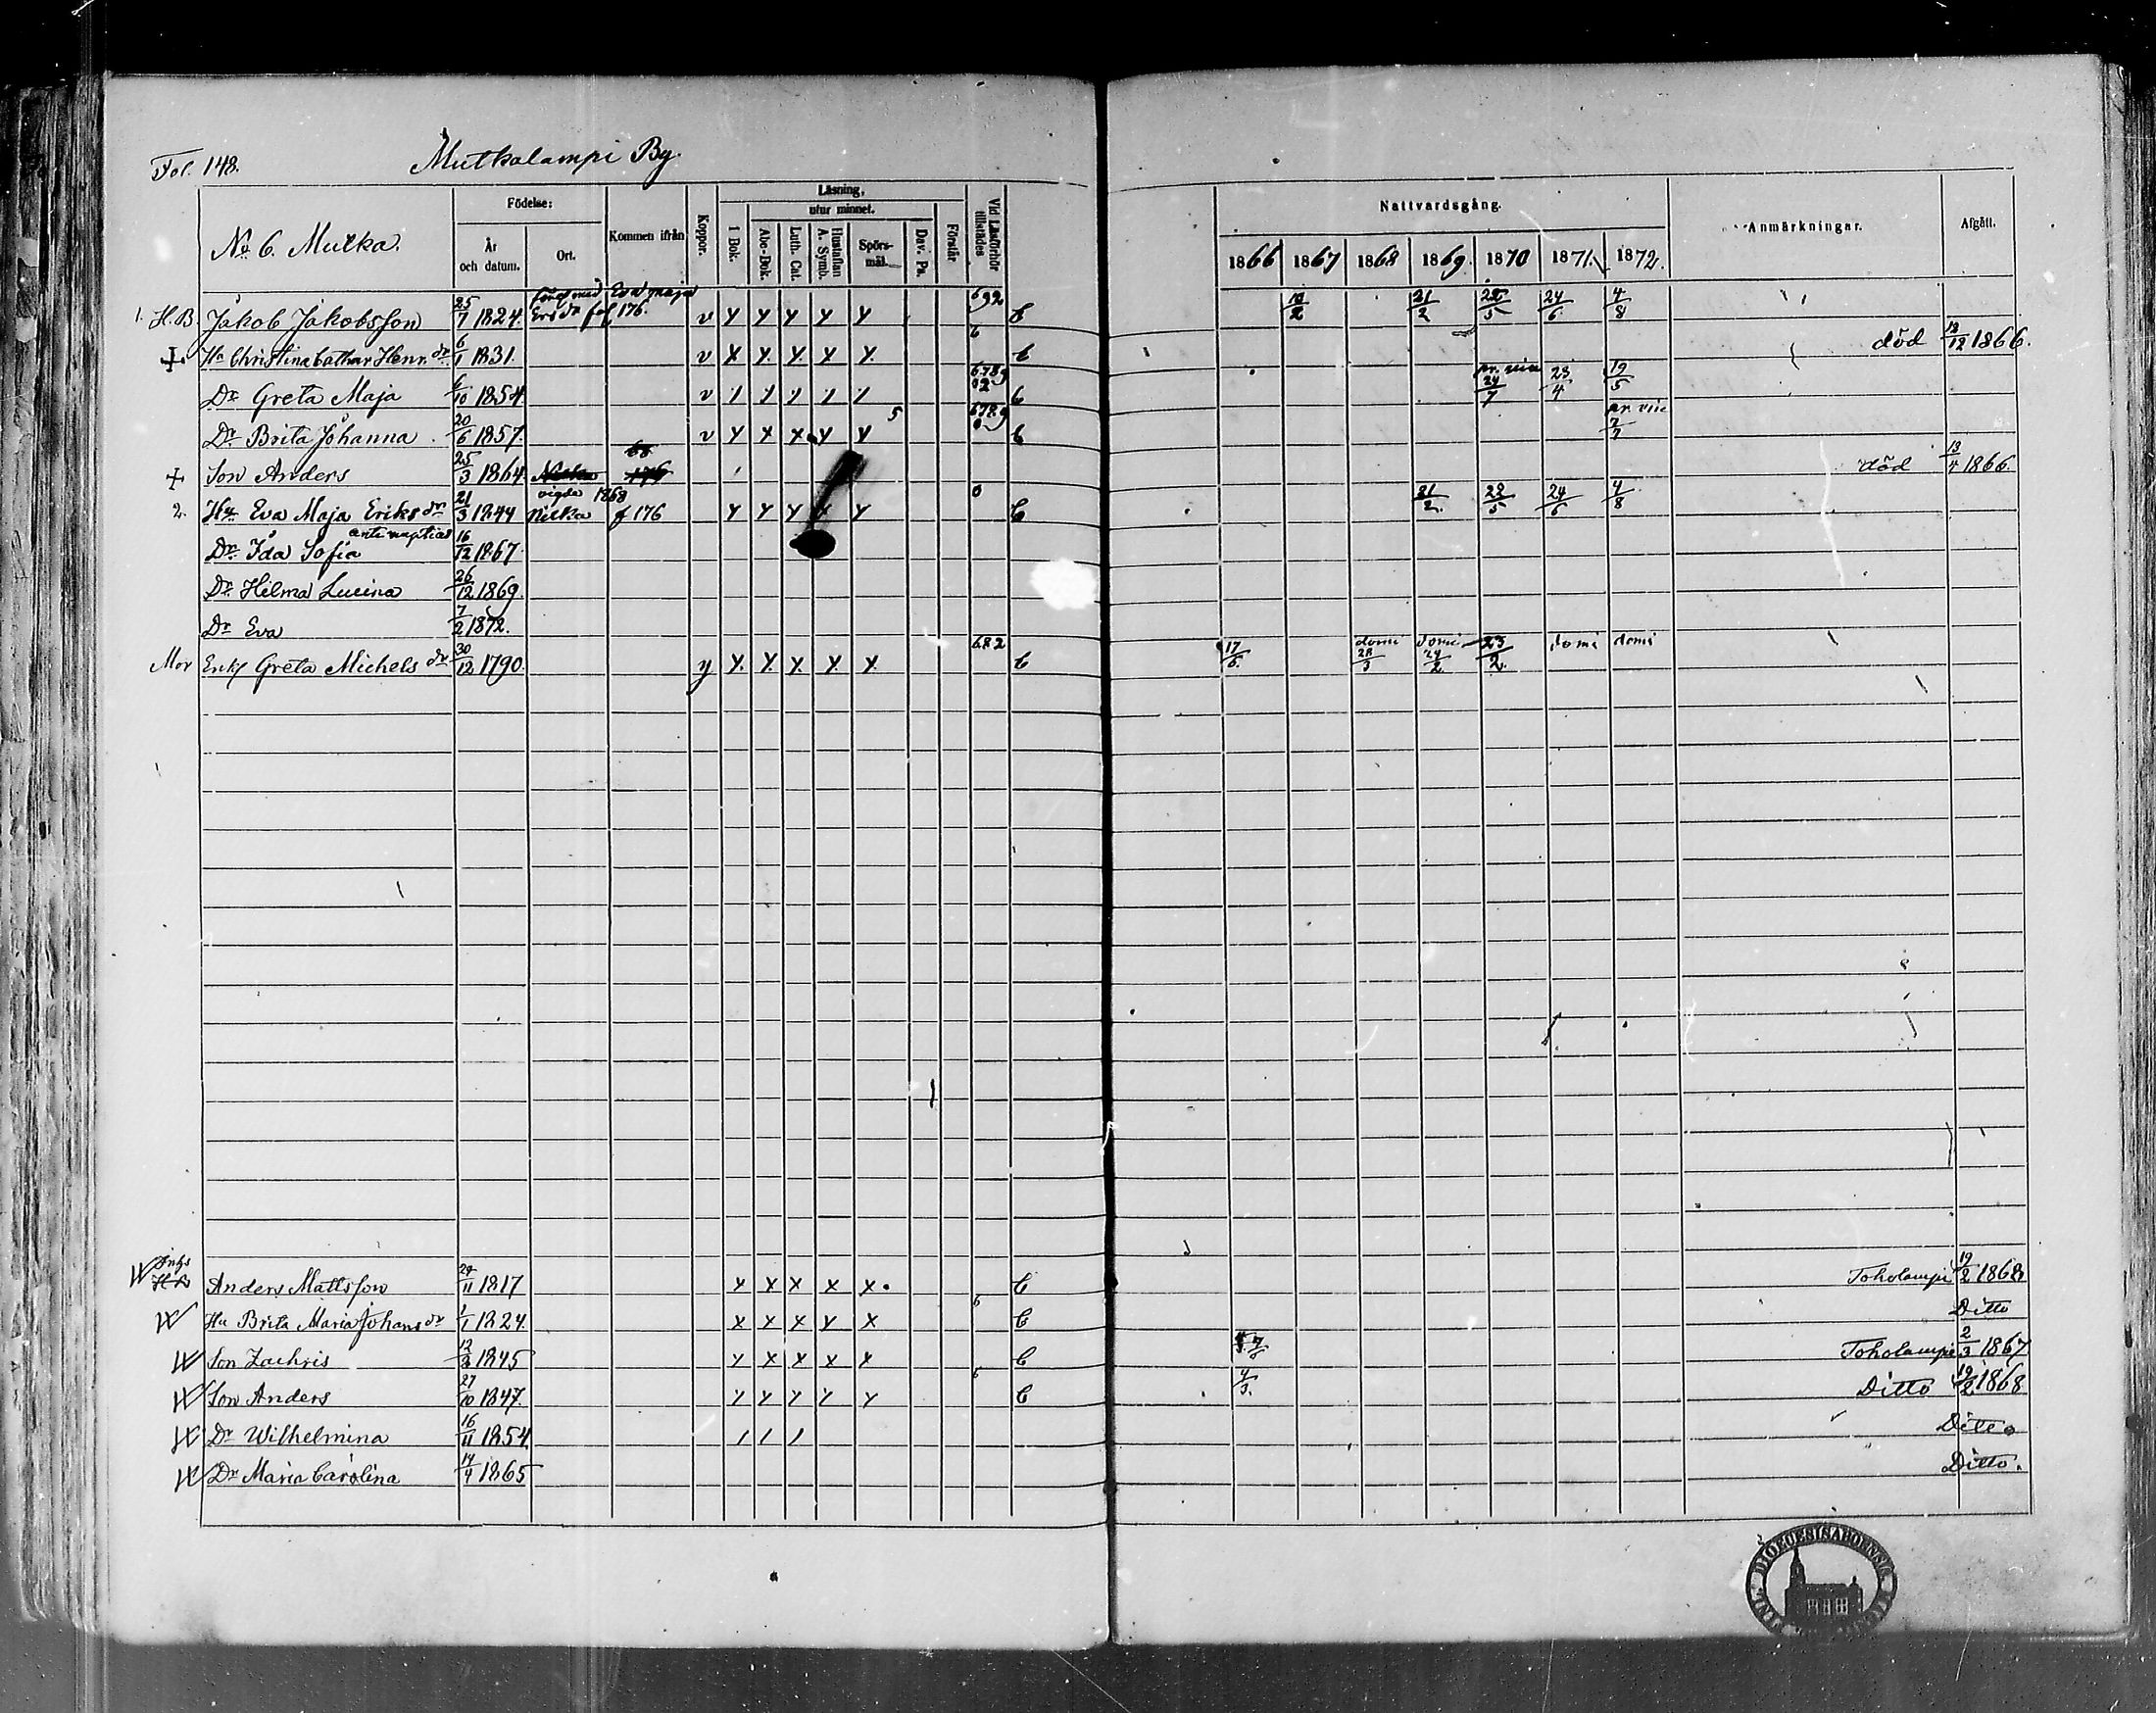 Fol. 148. Mutkalampi By.
No 6. Mutka. Födelse: År och datum. Ort. Kommen ifrån Koppor. Läsning, 1 Bok. utur minnet. Abc-Bok. Luth. Cat. Hustaflan A. Symb. Spörsmål. Dav. Ps. Förstår Vid Läsförhör tillstädes Nattvardsgång. 1866 1867 1868 1869. 1870 1871. 1872. Anmärkningar. Afgått.
med Eva Maja
1. H.B. Jakob Jakobsson 25/7 1824. fol 176. v y y y y y 692 b 21/2 24/6 4/8
Ha Christina Cathar Henr. dr 6/1 1831. v x y y y y 6 b död 18/12 1866.
Dr Greta Maja 6/10 1854. v 6789 02 b 24/7 23/4 19/5
Dr Brita Johanna 20/6 1857. v y x x y y 5 6789 0 b 7/7
Son Anders 25/3 1864 död 13/4 1866.
vigde 1868
2. Hu Eva Maja Eriks dr 21/3 1844 f 176 y y y y y 0 b 21/2 22/5 24/6 4/8
Dr Ida Sofia 16/12 1867.
Dr Hilma Lucina 26/12 1869.
Dr Eva 7/2 1872.
Mor Enkf Greta Michels dr 30/12 1790. y y y y y y 682 b 17/6. domi 28/3 domi 24/2 23/2. domi domi
Inhs
H B Anders Mattsson 29/11 1817 x x x x x b Toholampi 19/2 1868
Hu Brita Maria Johans dr 1/1 1824. x x x y x 6 b Ditto
Son Zachris 1845 y x x x x b Toholampi 2/3 1867
Son Anders 27/10 1847. y y y y y 6 b 4/3. Ditto 19/2 1868
Dr Wilhelmina 16/11 1854. Ditto
Dr Maria Carolina 14/4 1865 Ditto.
DIOECESIS ABOENSIS